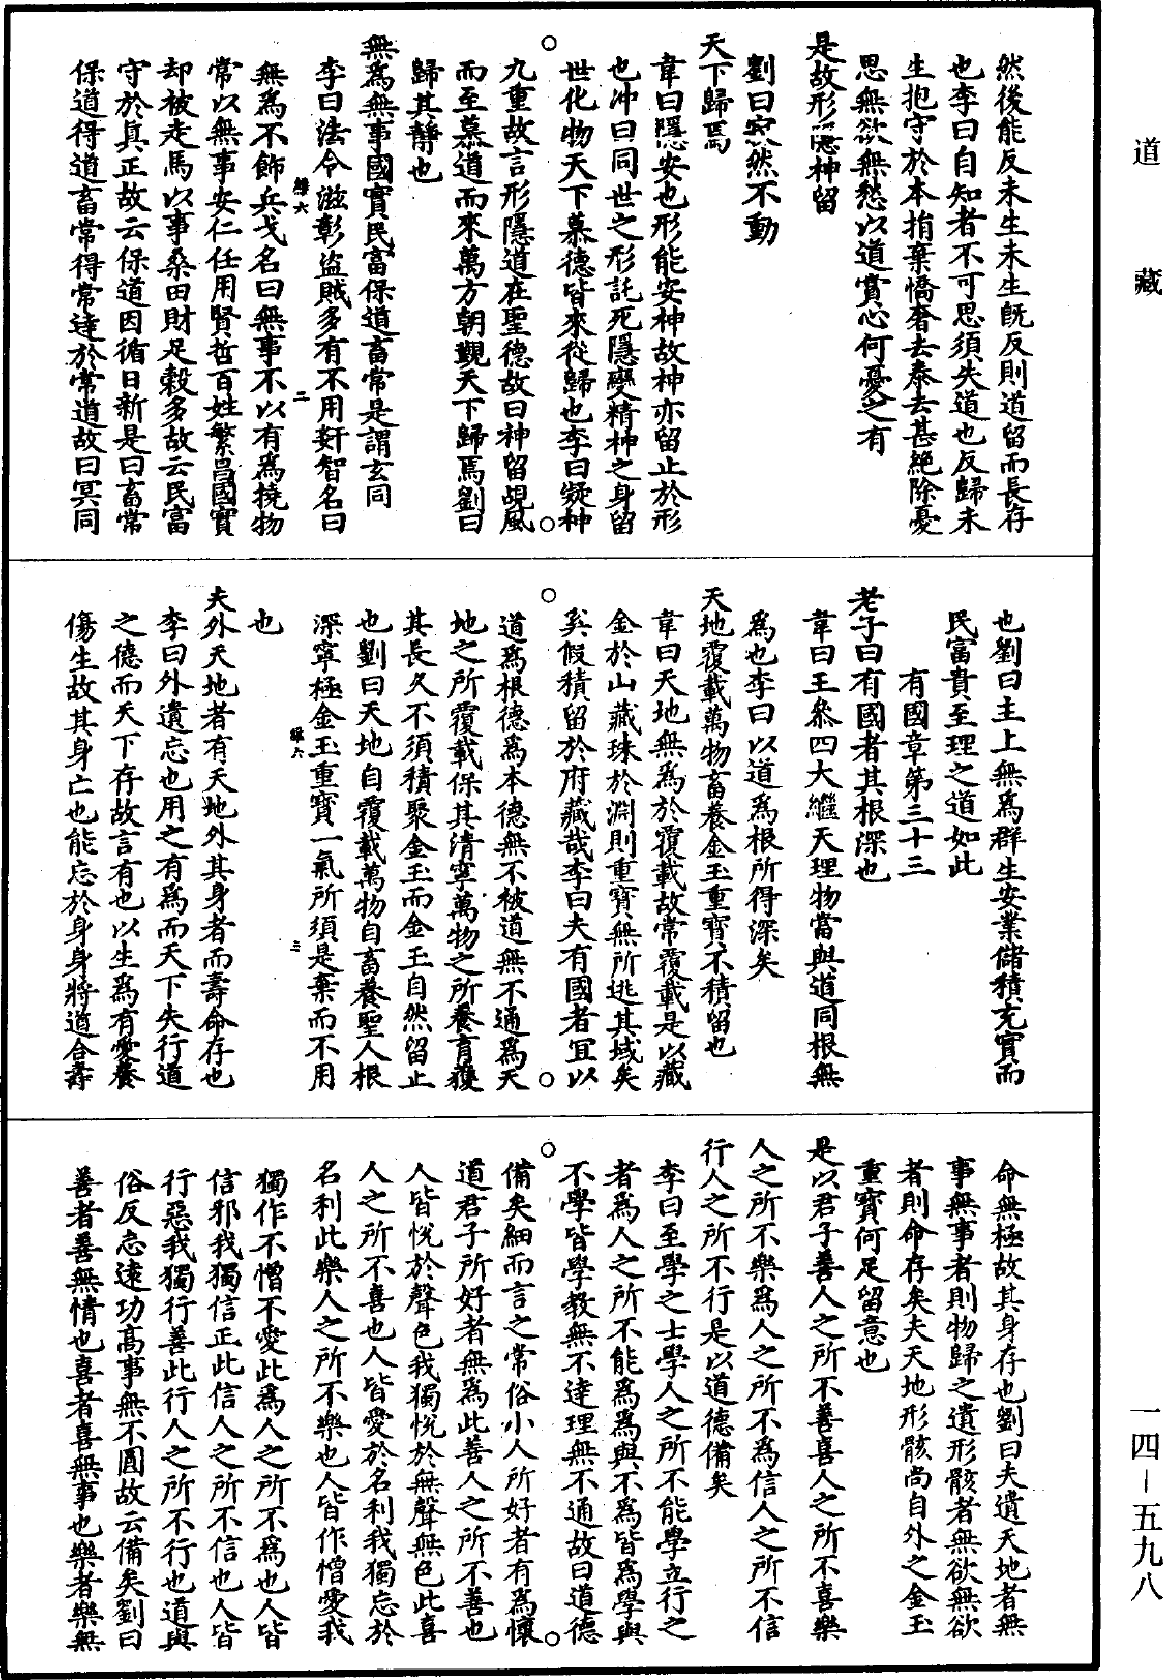 道藏
然後能反未生未生既反則道留而長存
也李曰自知者不可思須失道也反歸未
生抱守於本指棄憍奢去泰去甚絕除憂
思無欲無愁以道賞心何憂之有
是故形隱神留
劉曰寂然不動
天下歸焉
韋曰隱安也形能安神故神亦留止於形
也沖曰同世之形託死隱變精神之身留
世化物天下慕德皆來從歸也李曰凝神
九重故言形隱道在聖德故曰神留覩風
而至慕道而來萬方朝覲天下歸焉劉曰
歸其靜也
無為無事國實民富保道畜常是謂玄同
李曰法令滋彰盜賊多有不用奸智名曰
緣六
二
無為不飾兵戈名曰無事不以有為撓物
常以無事安仁任用賢哲百姓繁昌國實
却被走馬以事桑田財足穀多故云民富
守於真正故云保道因循日新是曰畜常
保道得道畜常得常達於常道故曰冥同
也劉曰主上無為群生安業儲積充實而
民富貴至理之道如此
有國章第三十三
老子曰有國者其根深也
韋曰王叅四大繼天理物當與道同根無
為也李曰以道為根所得深矣
天地覆載萬物畜養金玉重寶不積留也
韋曰天地無為於覆載故常覆載是以藏
金於山藏珠於淵則重寶無所逃其域矣
矣假積留於府藏哉李曰夫有國者宜以
道為根德為本德無不被道無不通為天
地之所覆載保其清寧萬物之所養育獲
其長久不須積聚金玉而金玉自然留止
也劉曰天地自覆載萬物自畜養聖人根
深寧極金玉重寶一氣所須是棄而不用
緣六
三
也
夫外天地者有天地外其身者而壽命存也
李曰外遺忘也用之有為而天下失行道
之德而天下存故言有也以生為有愛養
傷生故其身亡也能忘於身身將道合壽
命無極故其身存也劉曰夫遺天地者無
事無事者則物歸之遺形骸者無欲無欲
者則命存矣夫天地形骸尚自外之金玉
重寶何足留意也
是以君子善人之所不善喜人之所不喜樂
人之所不樂為人之所不為信人之所不信
行人之所不行是以道德備矣
李曰至學之士學人之所不能學立行之
者為人之所不能為為與不為皆為學與
不學皆學教無不達理無不通故曰道德
備矣細而言之常俗小人所好者有為懷
道君子所好者無為此善人之所不善也
人皆悅於聲色我獨悅於無聲無色此喜
人之所不喜也人皆愛於名利我獨忘於
名利此樂人之所不樂也人皆作憎愛我
獨作不憎不愛此為人之所不為也人皆
信邪我獨信正此信人之所不信也人皆
行惡我獨行善此行人之所不行也道與
俗反忘遠功高事無不圓故云備矣劉曰
善者善無情也喜者喜無事也樂者樂無
一四－五九八